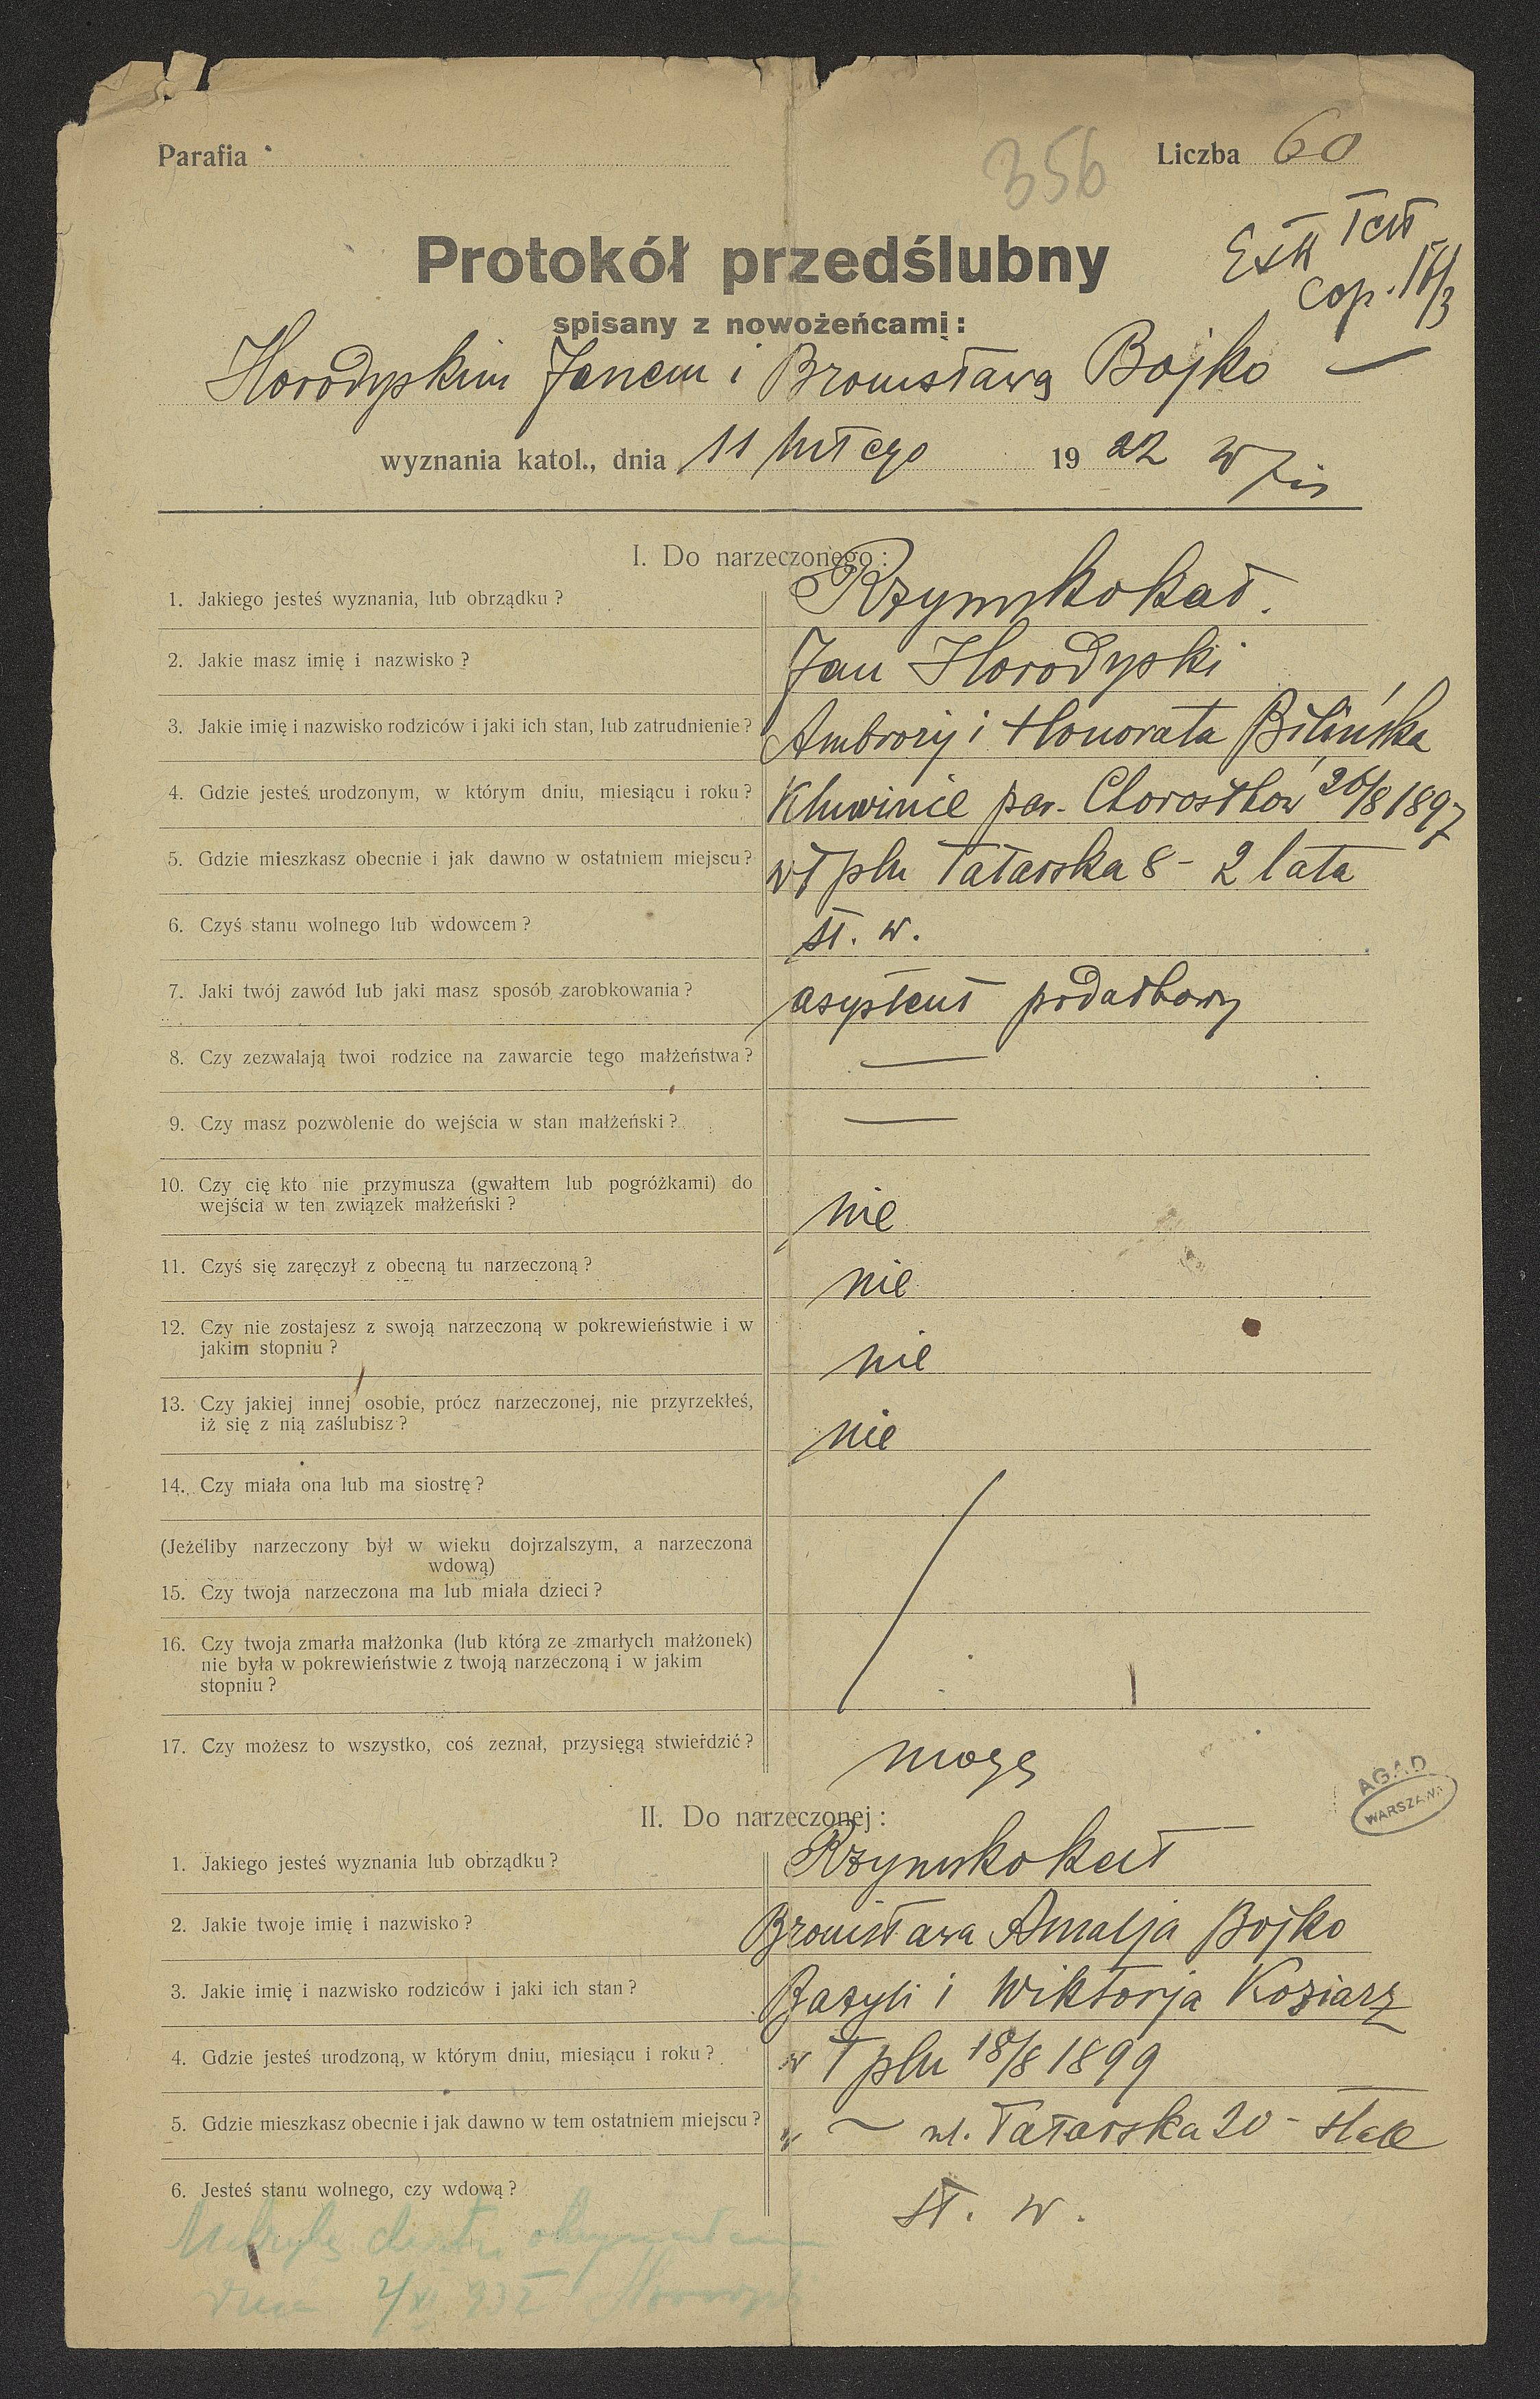 Parafia
356
Liczba 60
Protokół przedślubny
cop.
spisany z nowożeńcami:
Horodyskim Janem i Bronisławą Bojko
wyznania katol., dnia 11 lutego 1922
I. Do narzeczonego:
1. Jakiego jesteś wyznania, lub obrządku? Rzymskokat.
2. Jakie masz imię i nazwisko? Jan Horodyski
3. Jakie imię i nazwisko rodziców i jaki ich stan, lub zatrudnienie? Ambroży i Honorata Bilińska
4. Gdzie jesteś urodzonym, w którym dniu, miesiącu i roku? Kluwinie par. Chorostków 26/8 1897
5. Gdzie mieszkasz obecnie i jak dawno w ostatniem miejscu? w Tplu Tatarska 8 - 2 lata
6. Czyś stanu wolnego lub wdowcem? st. w.
7. Jaki twój zawód lub jaki masz sposób zarobkowania? asystent podatkowy
8. Czy zezwalają twoi rodzice na zawarcie tego małżeństwa? —
9. Czy masz pozwolenie do wejścia w stan małżeński? —
10. Czy cię kto nie przymusza (gwałtem lub pogróżkami) do
wejścia w ten związek małżeński? nie
11. Czyś się zaręczył z obecną tu narzeczoną? nie
12. Czy nie zostajesz z swoją narzeczoną w pokrewieństwie i w
jakim stopniu? nie
13. Czy jakiej innej osobie, prócz narzeczonej, nie przyrzekłeś,
iż się z nią zaślubisz? nie
14. Czy miała ona lub ma siostrę?
(Jeżeliby narzeczony był w wieku dojrzalszym, a narzeczona
wdową)
15. Czy twoja narzeczona ma lub miała dzieci?
16. Czy twoja zmarła małżonka (lub która ze zmarłych małżonek)
nie była w pokrewieństwie z twoją narzeczoną i w jakim
stopniu?
17. Czy możesz to wszystko, coś zeznał, przysięgą stwierdzić? mogę
AGAD
WARSZAWA
II. Do narzeczonej:
1. Jakiego jesteś wyznania lub obrządku? Rzymskokat
2. Jakie twoje imię i nazwisko? Bronisława Amalja Bojko
3. Jakie imię i nazwisko rodziców i jaki ich stan? Bazyli i Wiktorja Koziarz
4. Gdzie jesteś urodzoną, w którym dniu, miesiącu i roku? w Tplu 18/8 1899
5. Gdzie mieszkasz obecnie i jak dawno w tem ostatniem miejscu? w ~ ul. Tatarska 20 - stale
6. Jesteś stanu wolnego, czy wdową? st. w.